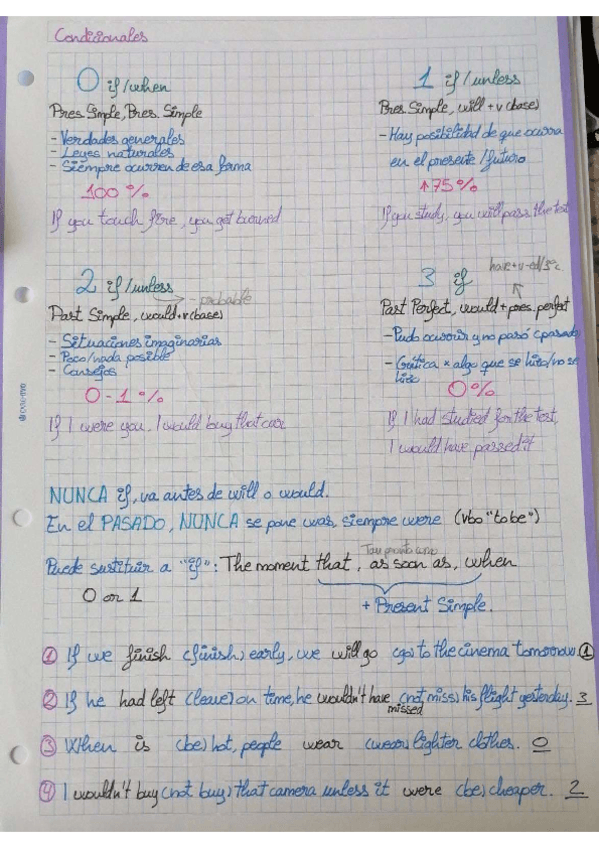 Condicionales
0 if/when
Pres. Simple, Pres. Simple
- Verdades generales
- Leyes naturales
- Siempre ocurren de esa forma
100%
If you touch fire, you get burned
1 if/unless
Pres. Simple, will + v (base)
- Hay posibilidad de que ocurra
en el presente/futuro
↑75%
If you study, you will pass the test
2 if/unless
→ - probable
Past Simple, would + v (base)
- Situaciones imaginarias
- Poco/nada posible
- Consejos
0-1%
If I were you, I would buy that car
have + v-ed/3ªc
3 if
Past Perfect, would + pres. perfect
- Pudo ocurrir y no pasó (pasado)
- Crítica x algo que se hizo/no se
hizo
0%
If I had studied for the test,
I would have passed it
NUNCA if, va antes de will o would.
En el PASADO, NUNCA se pone was, siempre were (vbo "to be")
Tan pronto como
Puede sustituir a "if": The moment that, as soon as, when
0 or 1
+ Present Simple.
① If we finish (finish) early, we will go (go) to the cinema tomorrow. ①
② If he had left (leave) on time, he wouldn't have (not miss) his flight yesterday. 3
missed
③ When is (be) hot, people wear (wear) lighter clothes. 0
④ I wouldn't buy (not buy) that camera unless it were (be) cheaper. 2